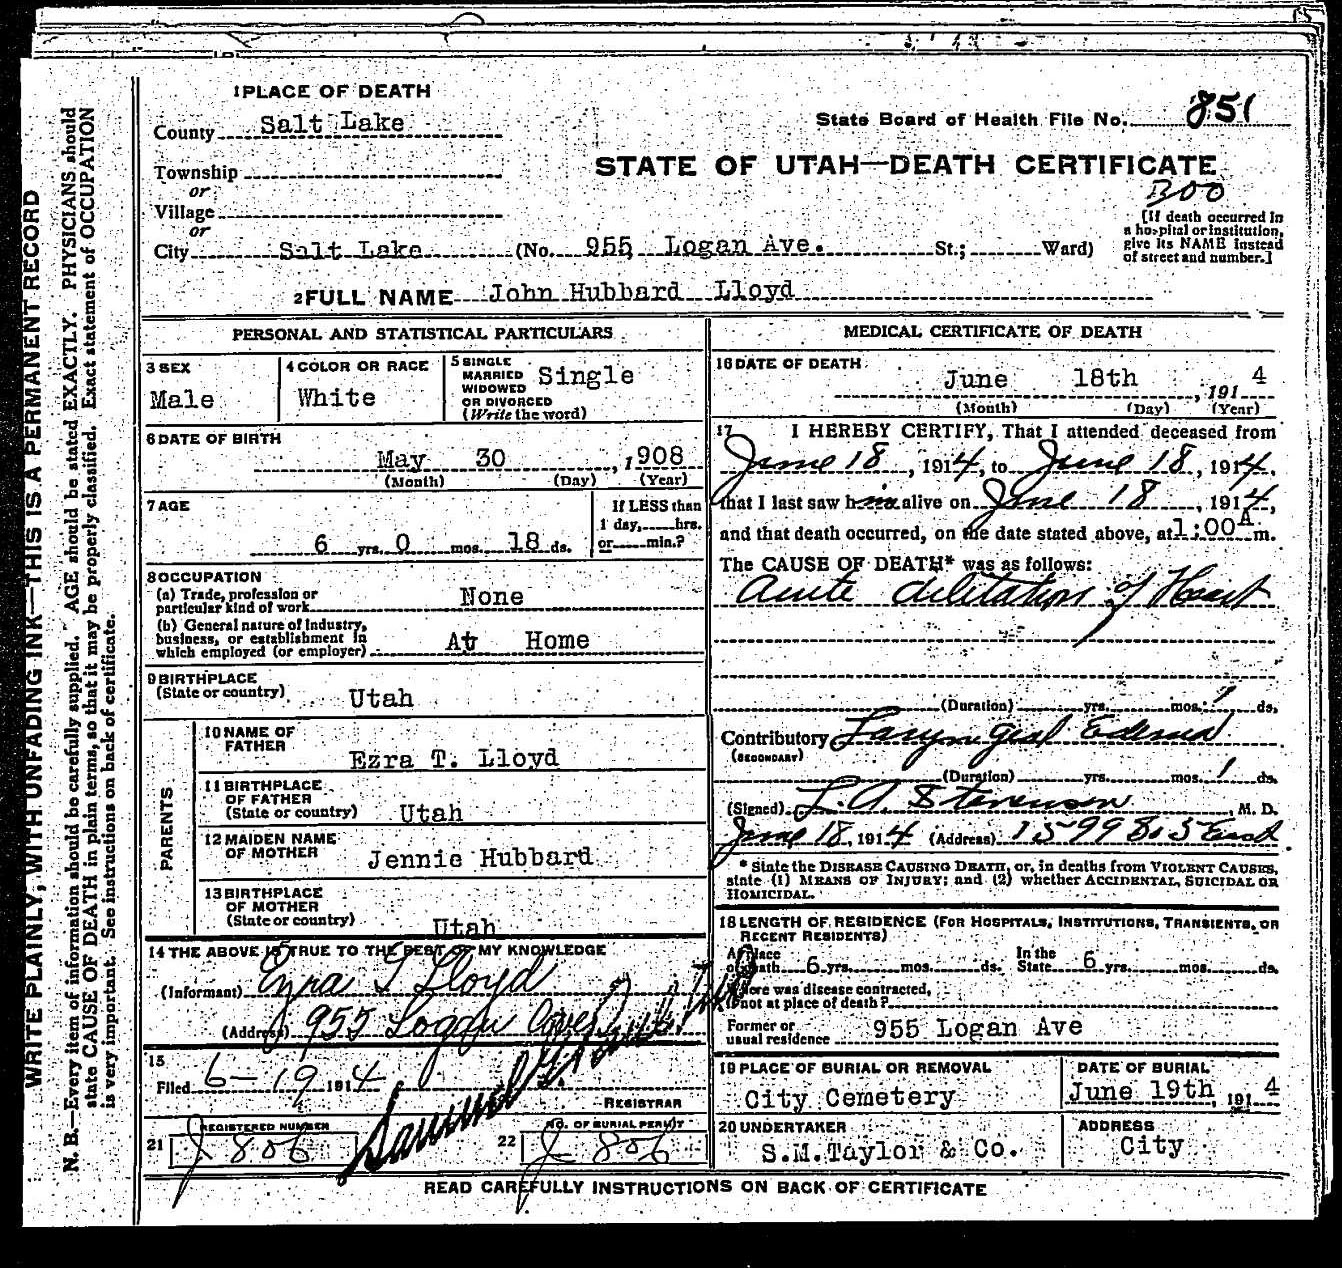 1 PLACE OF DEATH
County Salt Lake
State Board of Health File No. 851
STATE OF UTAH—DEATH CERTIFICATE
Township
or
Village
or
City Salt Lake (No. 955 Logan Ave. St.; Ward)
300
[If death occurred in
a hospital or institution,
give its NAME instead
of street and number.]
2 FULL NAME John Hubbard Lloyd
PERSONAL AND STATISTICAL PARTICULARS
3 SEX
Male
4 COLOR OR RACE
White
5 SINGLE
MARRIED
WIDOWED
OR DIVORCED
(Write the word)
Single
6 DATE OF BIRTH
May 30, 1908
(Month) (Day) (Year)
7 AGE
6 yrs. 0 mos. 18 ds.
If LESS than
1 day, hrs.
or min.?
8 OCCUPATION
(a) Trade, profession or
particular kind of work None
(b) General nature of Industry,
business, or establishment in
which employed (or employer) At Home
9 BIRTHPLACE
(State or country) Utah
PARENTS
10 NAME OF
FATHER
Ezra T. Lloyd
11 BIRTHPLACE
OF FATHER
(State or country) Utah
12 MAIDEN NAME
OF MOTHER Jennie Hubbard
13 BIRTHPLACE
OF MOTHER
(State or country) Utah
14 THE ABOVE IS TRUE TO THE BEST OF MY KNOWLEDGE
(Informant) Ezra T Lloyd
(Address) 955 Logan Ave
15
Filed 6-19 1914
Samuel G.
REGISTRAR
21 REGISTERED NUMBER
J 806
22 NO. OF BURIAL PERMIT
J 806
MEDICAL CERTIFICATE OF DEATH
16 DATE OF DEATH
June 18th, 1914
(Month) (Day) (Year)
17 I HEREBY CERTIFY, That I attended deceased from
June 18, 1914, to June 18, 1914,
that I last saw him alive on June 18, 1914,
and that death occurred, on the date stated above, at 1:00 A m.
The CAUSE OF DEATH* was as follows:
Acute dilitation of Heart
(Duration) yrs. mos. 1 ds.
Contributory Laryngeal Edema
(SECONDARY)
(Duration) yrs. mos. 1 ds.
(Signed) L. A. Stevenson, M. D.
June 18, 1914 (Address) 1599 8 5 East
* State the DISEASE CAUSING DEATH, or, in deaths from VIOLENT CAUSES,
state (1) MEANS OF INJURY; and (2) whether ACCIDENTAL, SUICIDAL OR
HOMICIDAL.
18 LENGTH OF RESIDENCE (FOR HOSPITALS, INSTITUTIONS, TRANSIENTS, OR
RECENT RESIDENTS)
At place
of death 6 yrs. mos. ds. In the
State 6 yrs. mos. ds.
Where was disease contracted,
if not at place of death?
Former or
usual residence 955 Logan Ave
19 PLACE OF BURIAL OR REMOVAL
City Cemetery
DATE OF BURIAL
June 19th, 1914
20 UNDERTAKER
S.M.Taylor & Co.
ADDRESS
City
READ CAREFULLY INSTRUCTIONS ON BACK OF CERTIFICATE
WRITE PLAINLY, WITH UNFADING INK—THIS IS A PERMANENT RECORD
N. B.—Every item of information should be carefully supplied. AGE should be stated EXACTLY. PHYSICIANS should
state CAUSE OF DEATH in plain terms, so that it may be properly classified. Exact statement of OCCUPATION
is very important. See instructions on back of certificate.